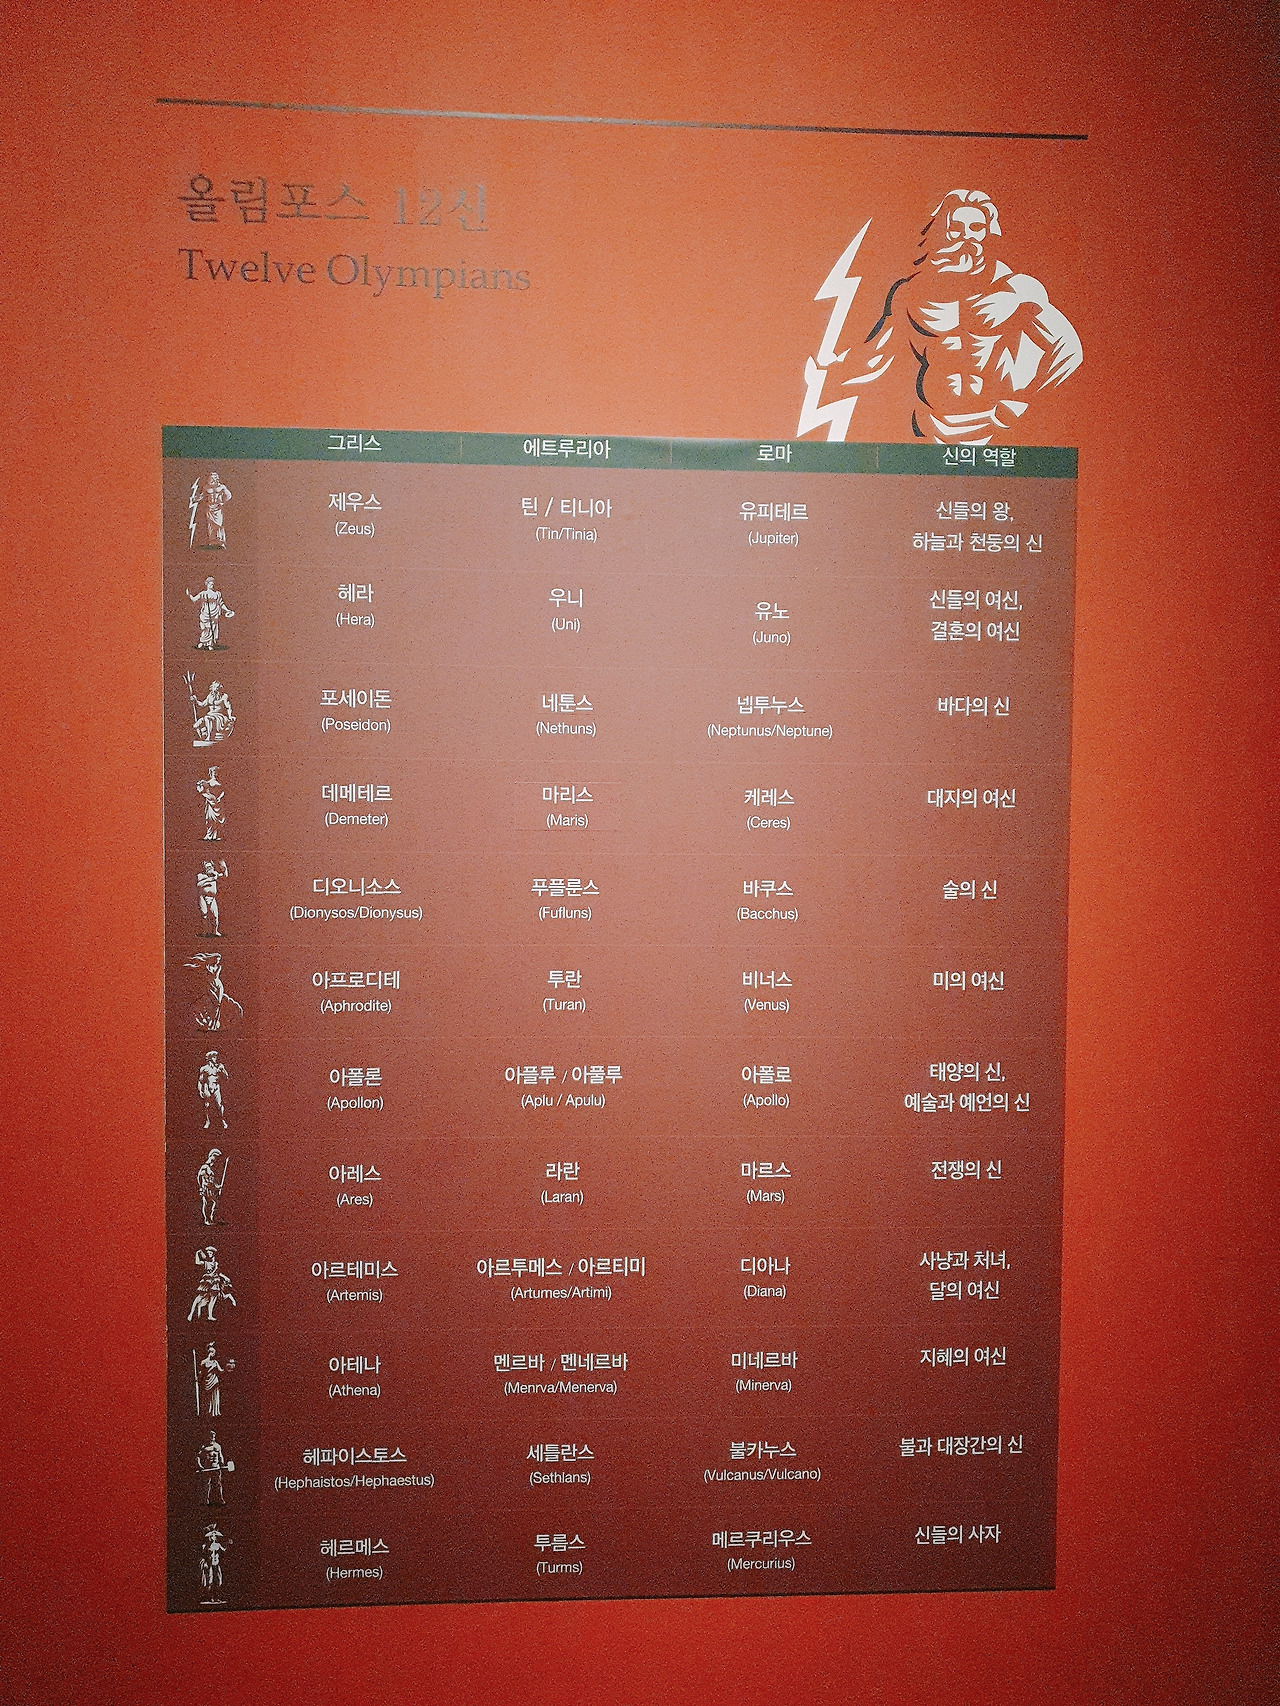 올림포스 12신
Twelve Olympians
그리스 에트루리아 로마 신의 역할
제우스 틴 / 티니아 유피테르 신들의 왕,
(Zeus) (Tin/Tinia) (Jupiter) 하늘과 천둥의 신
헤라 우니 유노 신들의 여신,
(Hera) (Uni) (Juno) 결혼의 여신
포세이돈 네툰스 넵투누스 바다의 신
(Poseidon) (Nethuns) (Neptunus/Neptune)
데메테르 마리스 케레스 대지의 여신
(Demeter) (Maris) (Ceres)
디오니소스 푸플룬스 바쿠스 술의 신
(Dionysos/Dionysus) (Fufluns) (Bacchus)
아프로디테 투란 비너스 미의 여신
(Aphrodite) (Turan) (Venus)
아폴론 아플루 / 아풀루 아폴로 태양의 신,
(Apollon) (Aplu / Apulu) (Apollo) 예술과 예언의 신
아레스 라란 마르스 전쟁의 신
(Ares) (Laran) (Mars)
아르테미스 아르투메스 / 아르티미 디아나 사냥과 처녀,
(Artemis) (Artumes/Artimi) (Diana) 달의 여신
아테나 멘르바 / 멘네르바 미네르바 지혜의 여신
(Athena) (Menrva/Menerva) (Minerva)
헤파이스토스 세틀란스 불카누스 불과 대장간의 신
(Hephaistos/Hephaestus) (Sethlans) (Vulcanus/Vulcano)
헤르메스 투름스 메르쿠리우스 신들의 사자
(Hermes) (Turms) (Mercurius)